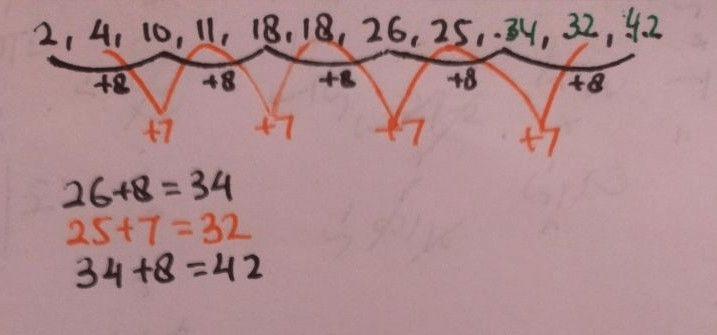 2, 4, 10, 11, 18, 18, 26, 25, 34, 32, 42
+8 +8 +8 +8 +8
+7 +7 +7 +7
26+8=34
25+7=32
34+8=42